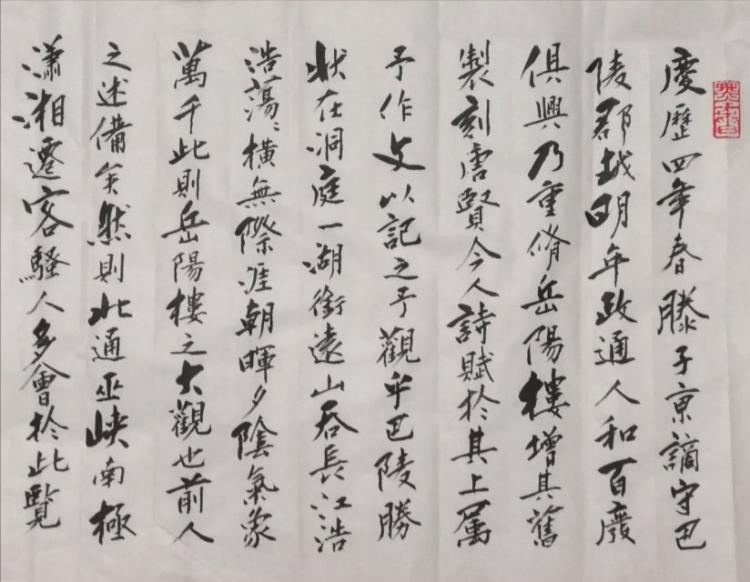 慶歷四年春滕子京謫守巴
陵郡越明年政通人和百廢
俱興乃重脩岳陽樓增其舊
製刻唐賢今人詩賦於其上屬
予作文以記之予觀乎巴陵勝
狀在洞庭一湖銜遠山吞長江浩
浩蕩〻橫無際涯朝暉夕陰氣象
萬千此則岳陽樓之大觀也前人
之述備矣然則北通巫峽南極
瀟湘遷客騷人多會於此覽